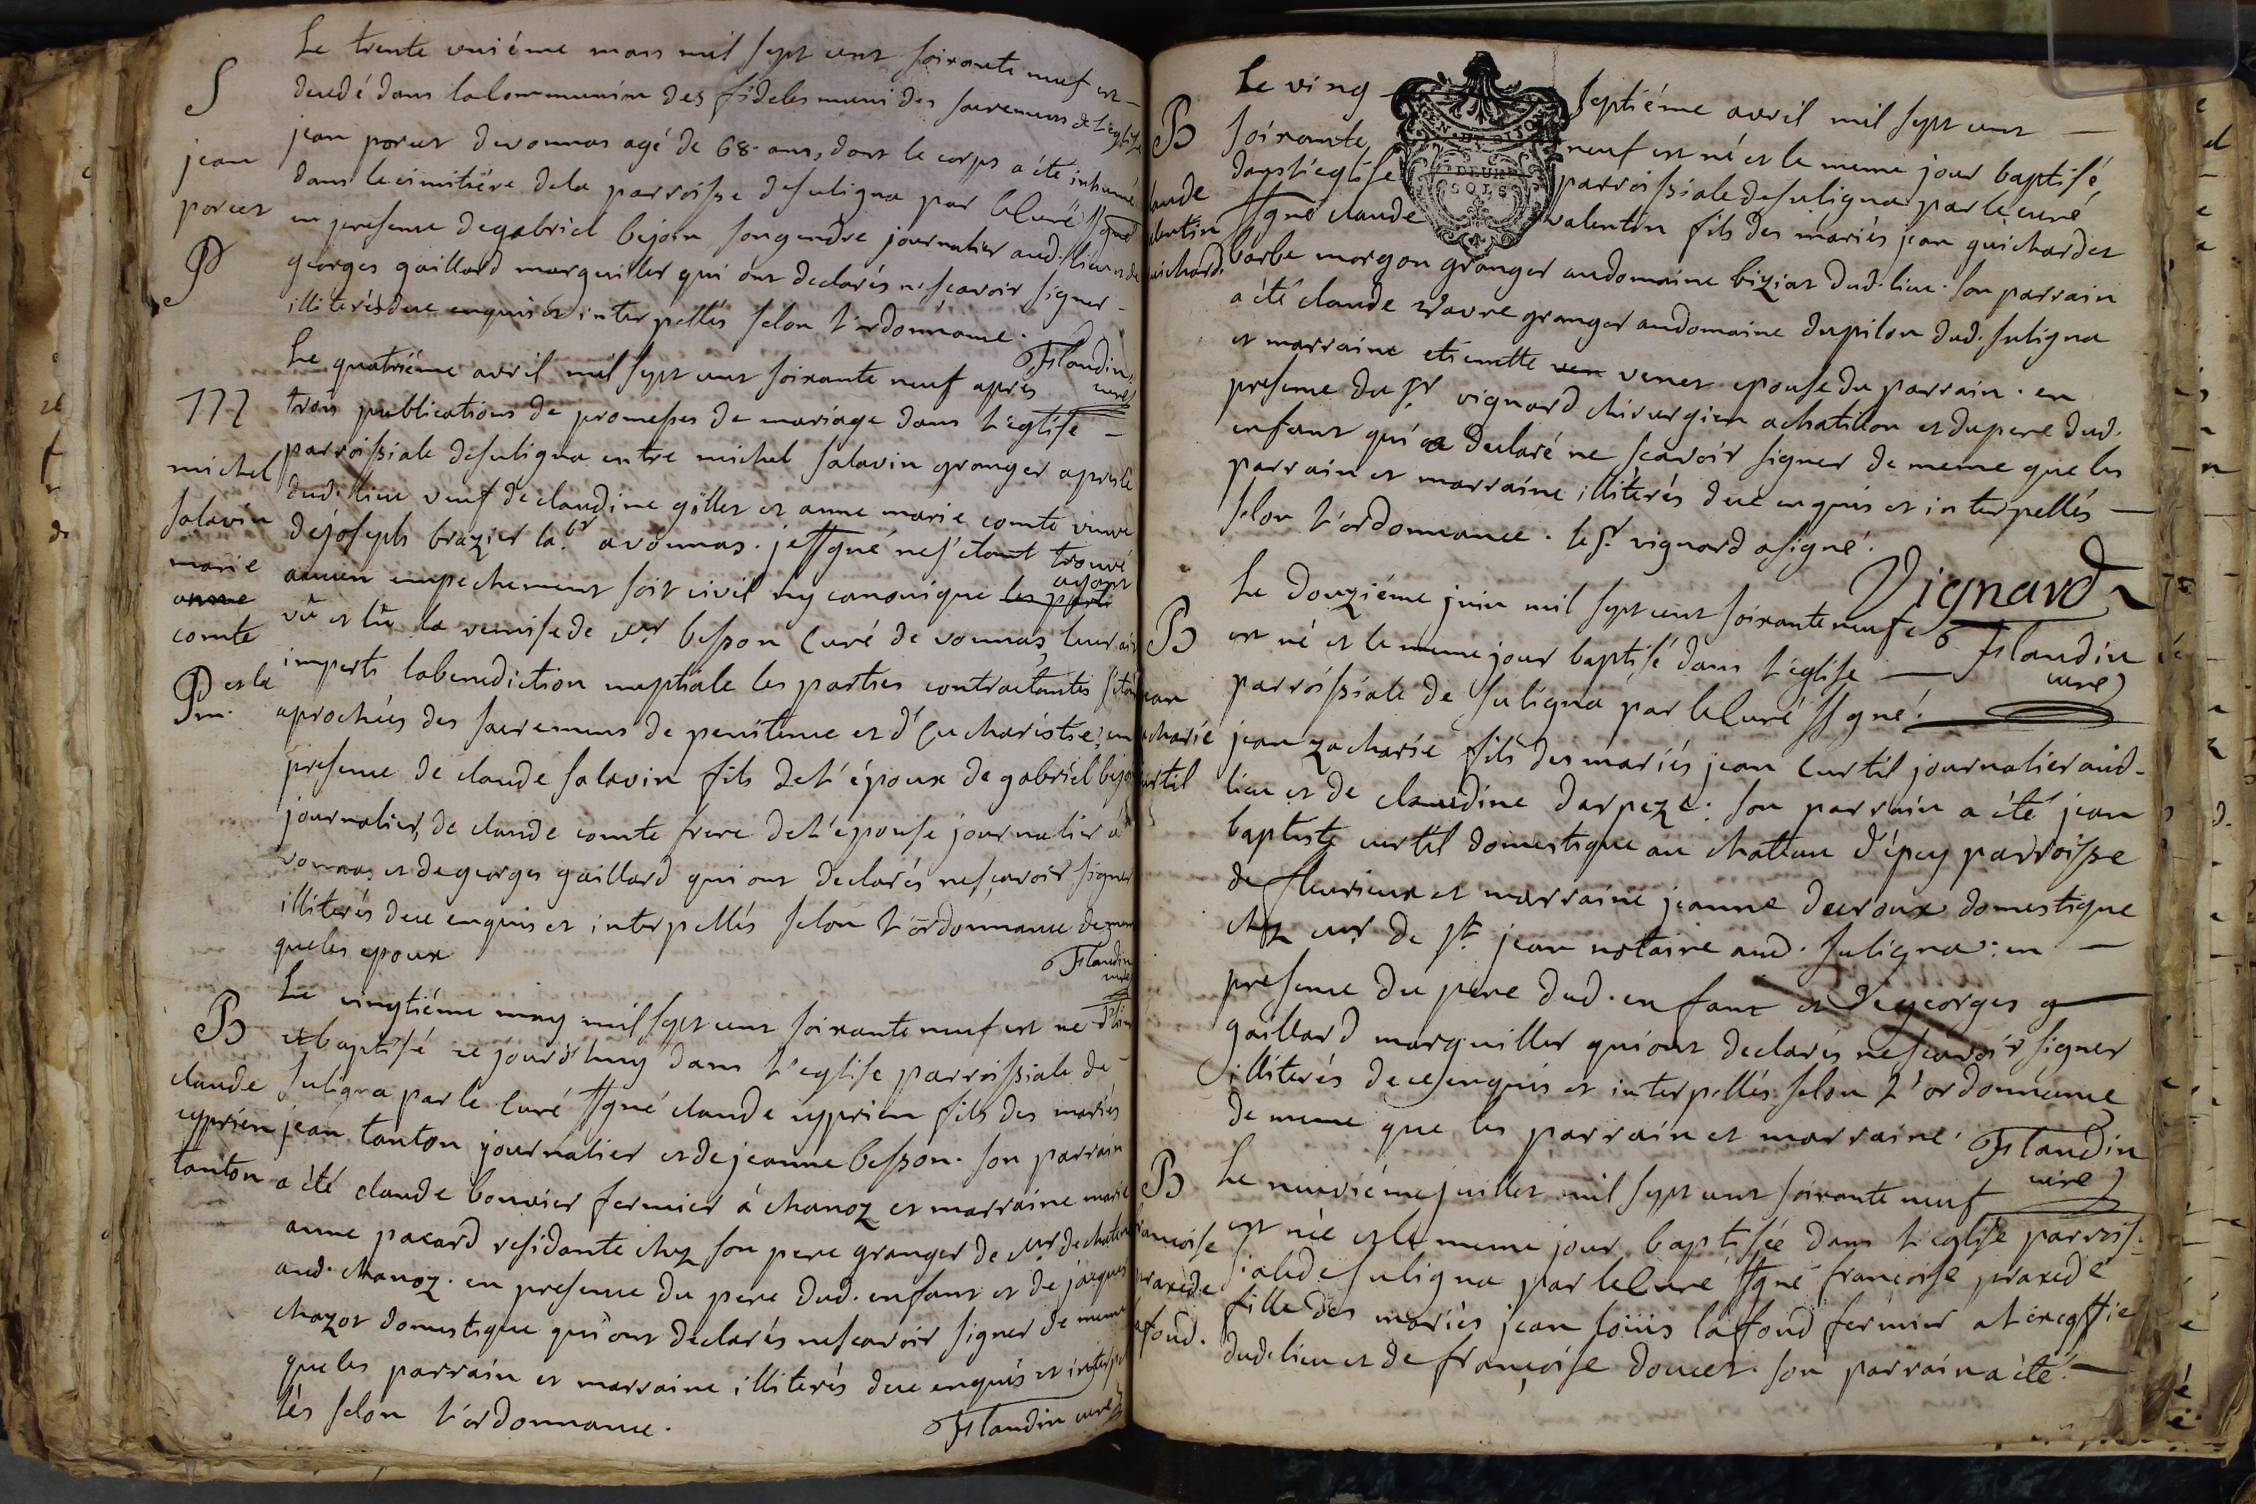 Le trente uniéme mars mil sept cent soixante neuf est —
S
decedé dans la Communion des fideles muni des sacremens de l'eglise
jean
jean porcet de vonnas agé de 68 ans, dont le corps a été inhumé
porcet
dans le cimitiére de la parroisse de suligna par le Curé ssgné
P
en presence de gabriel bejoin son gendre journalier aud. lieu et de
georges gaillard marguiller qui ont declarés ne scavoir signer —
illiterés de ce enquis et interpellés selon l'ordonnance.
Flandin curé
Le quatriéme avril mil sept cent soixante neuf apres
trois publications de promesses de mariage dans l'eglise —
michel
parroissiale de suligna entre michel salavin granger
salavin
dud. lieu veuf de claudine gillet et anne marie comte veuve
marie
de joseph brazier la.br a vonnas. je ssgné ne s'etant trouvé
anne
aucun empechement soit civil ny canonique les parti ayant
comte
vû et lû la remise de mr besson Curé de vonnas, leur ait
P et la Pm.
imparti la benediction nuptiale les parties contractantes s'étant
aprochées des sacremens de penitence et d'Eucharistie; en
presence de claude salavin fils de l'époux de gabriel bejoin
journalier, de claude comte frere de l'épouse journalier à
vonnas et de georges gaillard qui ont declarés ne scavoir signer
illiterés de ce enquis et interpellés selon l'ordonnance de meme
que les epoux
Flandin curé
Le vingtiéme may mil sept cent soixante neuf est né
B
et baptisé ce jourd'huy dans l'eglise parroissiale de —
claude
suligna par le Curé ssgné claude cyprien fils des mariés
cyprien
jean tanton journalier et de jeanne besson. son parrain
tanton
a été claude bouvier fermier à chanoz et marraine marie
anne pacard residante chez son pere granger de mr de chatenay
aud. chanoz. en presence du pere dud. enfant et de jacques
chazot domestique qui ont declarés ne scavoir signer de meme
que les parrain et marraine illiterés de ce enquis et interpel
lés selon l'ordonnance.
Flandin curé
GEN. DE DIJON
DEUX
SOLS
Le ving septiéme avril mil sept cent —
B
soixante neuf est né et le meme jour baptisé
dans l'eglise parroissiale de suligna par le curé
aude
ssgné claude valentin fils des mariés jean guichard et
lentin
barbe morgon granger au domaine biziat dud. lieu. son parrain
uichard.
a été claude granger au domaine du pilon dud. suligna
et marraine etienette ven venet epouse du parrain. en
presence du sr. vignard chirurgien a chatillon et du pere dud.
enfant qui a declaré ne scavoir signer de meme que les
parrain et marraine illiterés de ce enquis et interpellés —
selon l'ordonnance. le sr. vignard a signé.
Vignard
Flandin curé
Le douziéme juin mil sept cent soixante neuf
B
est né et le meme jour baptisé dans l'eglise —
parroissiale de suligna par le Curé ssgné.
ean
jean zacharie fils des mariés jean Curtil journalier aud.
acharie
lieu et de claudine darpeze. son parrain a été jean
urtil
baptiste curtil domestique au chateau d'épey parroisse
de fleurieux et marraine jeanne decroux domestique
chez mr. de st. jean notaire aud. suligna. en —
presence du pere dud. enfant et de georges g
gaillard marguiller qui ont declarés ne scavoir signer
illiterés de ce enquis et interpellés selon l'ordonnance
de meme que les parrain et marraine.
Flandin curé
Le neuviéme juillet mil sept cent soixante neuf
B
est née et le meme jour baptisée dans l'eglise parrois-
rancoise
siale de suligna par le Curé ssgné françoise praxede
praxede
fille des mariés jean loüis lafond fermier
afond.
dud. lieu et de françoise doucet. son parrain a été —